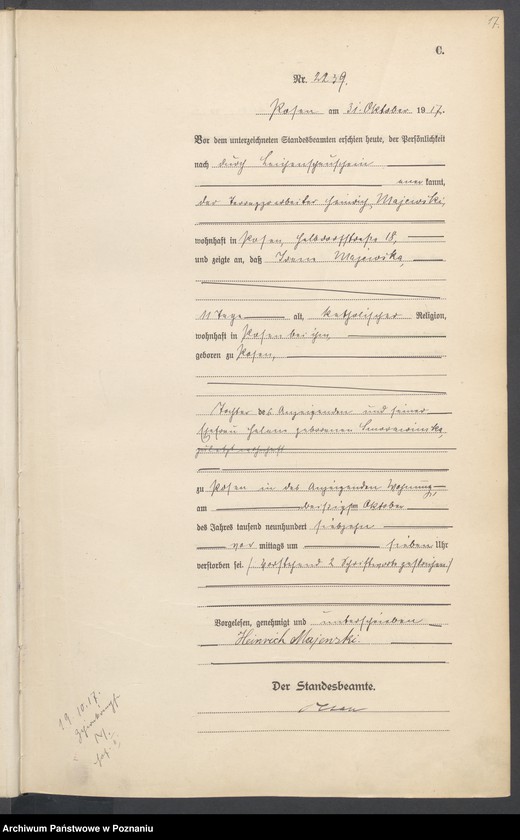 17.
C.
Nr. 2239.
Posen am 31. Oktober 1917.
Vor dem unterzeichneten Standesbeamten erschien heute, der Persönlichkeit
nach durch Leichenschauschein
aner kannt,
der Terrazzoarbeiter Heinrich Majewski,
wohnhaft in Posen, 18,
und zeigte an, daß Irene Majewska,
11 Tage alt, katholischer Religion,
wohnhaft in Posen bei ihm,
geboren zu Posen,
Tochter des Anzeigenden und seiner
Ehefrau Helene geborenen
zuletzt wohnhaft
zu Posen in des Anzeigenden Wohnung,
am dreißigsten Oktober
des Jahres tausend neunhundert siebzehn
vor mittags um sieben Uhr
verstorben sei. (Vorstehend 2 Schriftworte gestrichen)
Vorgelesen, genehmigt und unterschrieben
Heinrich Majewski
Der Standesbeamte.
19. 10. 17.
Archiwum Państwowe w Poznaniu